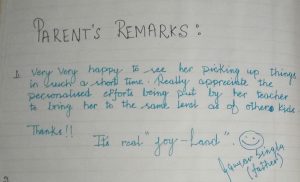 PARENT'S REMARKS :
1. Very Very happy to see her picking up things
in such a short time. Really appreciate the
personalised efforts being put by her teacher
to bring her to the same level as of others kids.
Thanks!!
It's real "Joy-Land".
(father)